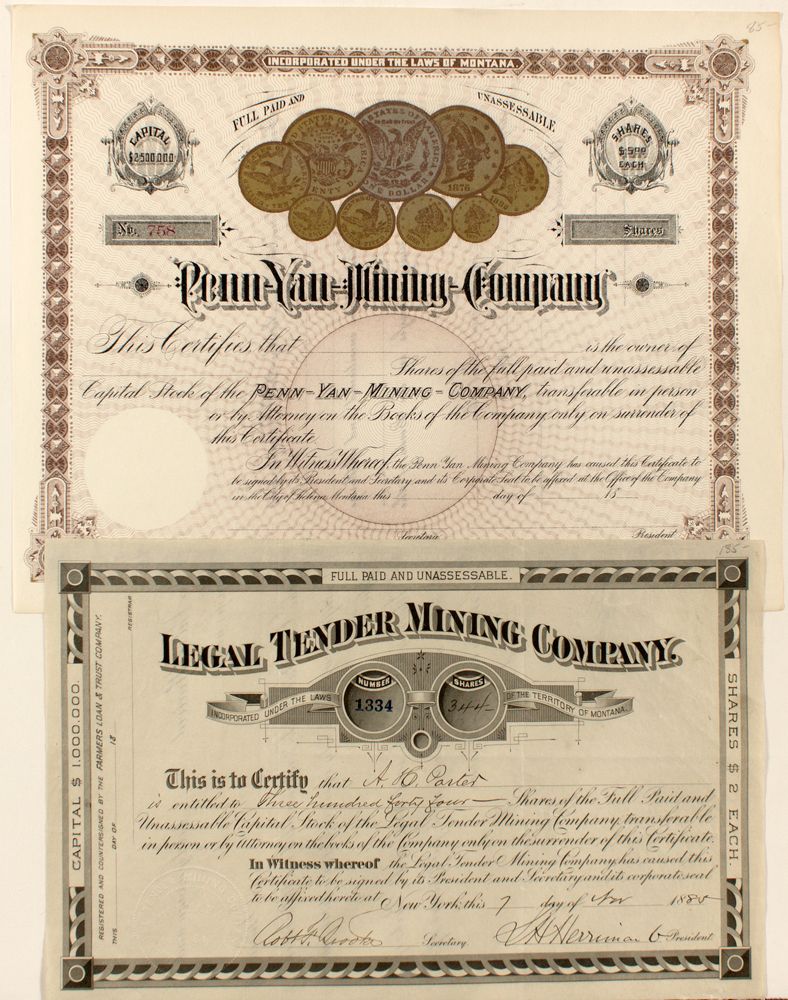 85-
INCORPORATED UNDER THE LAWS OF MONTANA.
FULL PAID AND UNASSESSABLE
CAPITAL $2500.000
SHARES $5.00 EACH
No. 758
Shares
Penn-Yan-Mining-Company
This Certifies that is the owner of
Shares of the full paid and unassessable
Capital Stock of the PENN-YAN-MINING-COMPANY, transferable in person
or by Attorney on the Books of the Company only on surrender of
this Certificate.
In Witness Whereof, the Penn Yan Mining Company has caused this Certificate to
be signed by its President and Secretary and its Corporate Seal to be affixed at the Office of the Company
in the City of Helena, Montana this day of 18
Secretary President
185-
FULL PAID AND UNASSESSABLE.
LEGAL TENDER MINING COMPANY.
NUMBER 1334
SHARES 344-
INCORPORATED UNDER THE LAWS OF THE TERRITORY OF MONTANA.
CAPITAL $ 1.000.000.
REGISTERED AND COUNTERSIGNED BY THE FARMERS LOAN & TRUST COMPANY.
THIS DAY OF 18
REGISTRAR
SHARES $ 2 EACH.
This is to Certify that A. H. Porter
is entitled to Three hundred forty four Shares of the Full Paid and
Unassessable Capital Stock of the Legal Tender Mining Company, transferable
in person or by Attorney on the books of the Company only on the surrender of this Certificate.
In Witness whereof the Legal Tender Mining Company has caused this
Certificate to be signed by its President and Secretary and its corporate seal
to be affixed hereto at New York this 7 day of Nov 188
Secretary President